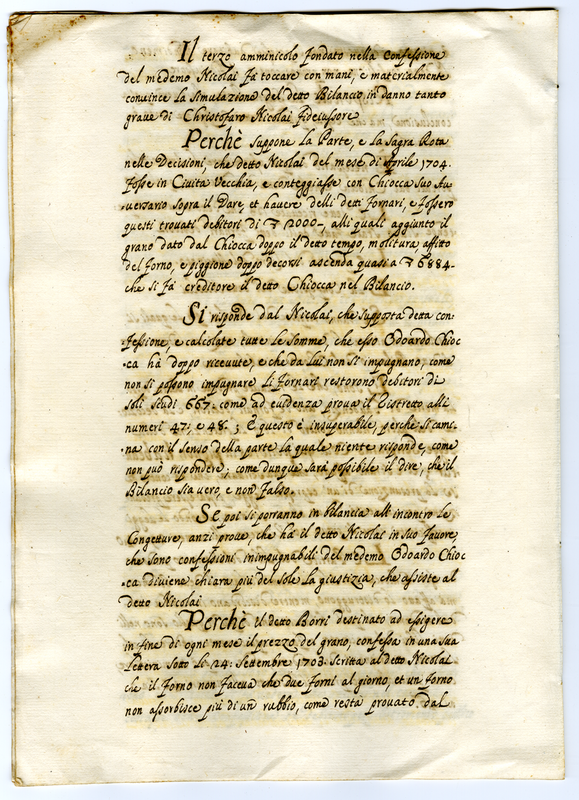 Il terzo amminicolo fondato nella Confessione
del medemo Nicolai fà toccare con mani, e materialmente
convince la simulazione del detto Bilancio in danno tanto
grave di Christofaro Nicolai fideiussore
Perchè suppone la Parte, e la Sagra Rota
nelle Decisioni, che detto Nicolai del mese di Aprile 1704.
fosse in Civita Vecchia, e conteggiasse con Chiocca suo Au
versario sopra il Dare, et havere delli detti fornari, e fossero
questi trovati debitori di ∇ 12000-, alli quali aggiunto il
grano dato dal Chiocca doppo il detto tempo, molitura, affitto
del forno, e piggione doppo decorsi ascenda quasi a ∇ 6884-
che si fà creditore il detto Chiocca nel Bilancio.
Si risponde dal Nicolai, che supposta detta con:
fessione, e calcolate tutte le somme, che esso Odoardo Chioc
:ca hà doppo ricevute, e che da lui non si impugnano, come
non si possono impugnare li fornari restorono debitori di
soli scudi 667: come ad evidenza prova il Ristretto alli
numeri 47: e 48: ; E questo è insuperabile, perche si cami:
:na con il senso della parte la quale niente risponde, come
non può rispondere; come dunque sarà possibile il dire, che il
Bilancio sia vero, e non falso.
Se poi si porranno in bilancia all'incontro le
Congetture, anzi prove, che hà il detto Nicolai in suo favore,
che sono confessioni inimpugnabili del medemo Odoardo Chioc
:ca diviene chiara più del sole la giustizia, che assiste al
detto Nicolai
Perchè il detto Borri destinato ad essigere
in fine di ogni mese il prezzo del grano, confessa in una sua
lettera sotto li 24: Settembre 1703. scritta al detto Nicolai
che il forno non faceva che due forni al giorno, et un forno
non assorbisce più di un rubbio, come resta provato dal